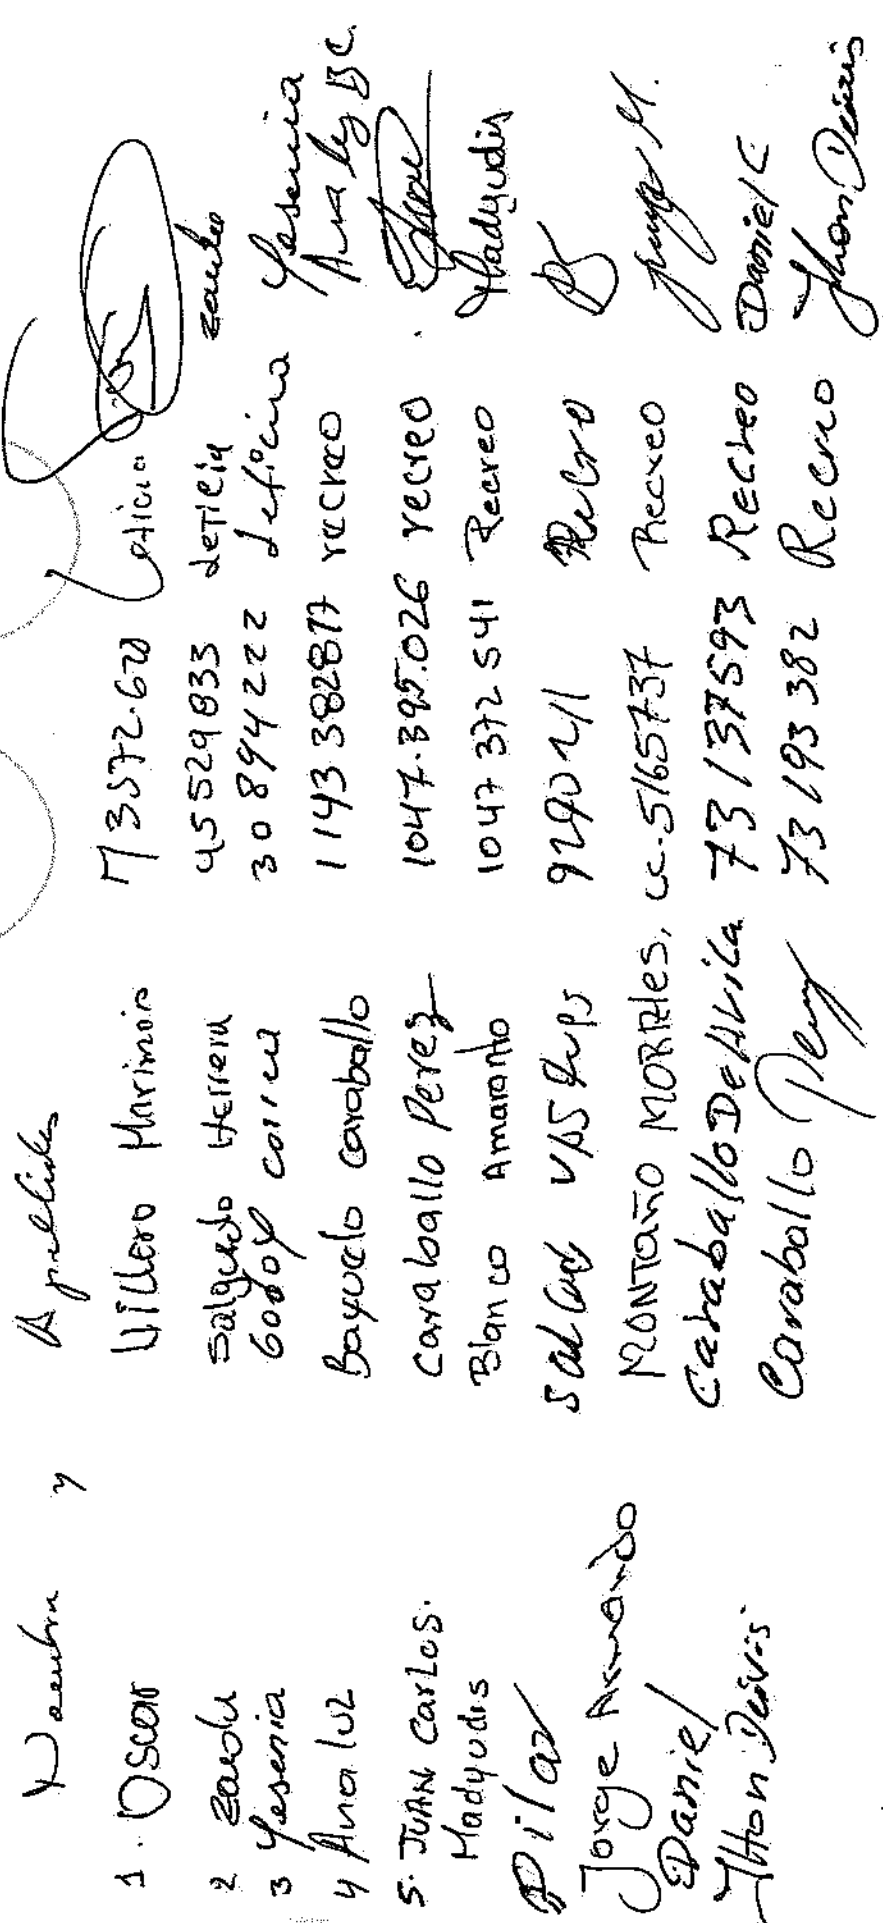 Nombre y Apellidos
1. Oscar Villero Marimon 73572.620 Leticia
2 Zaida Salgado Herrera 45529833 Leticia Zaida
3 Yesenia Godoy Correa 30894222 Leticia Yesenia
4 Ana luz Bayuelo Caraballo 1143382877 recreo Ana luz B C.
5. JUAN CARLOS. Caraballo Perez 1047.395.026 recreo
Madyudis Blanco Amaranto 1047372541 Recreo Madyudis
Pilar Recreo
Jorge Armando MONTAÑO MORALES, cc-5165737 Recreo Jorge M.
Daniel Caraballo De Avila 73137593 Recreo Daniel C
Jhon Deivis Caraballo Perez 73193382 Recreo Jhon Deivis